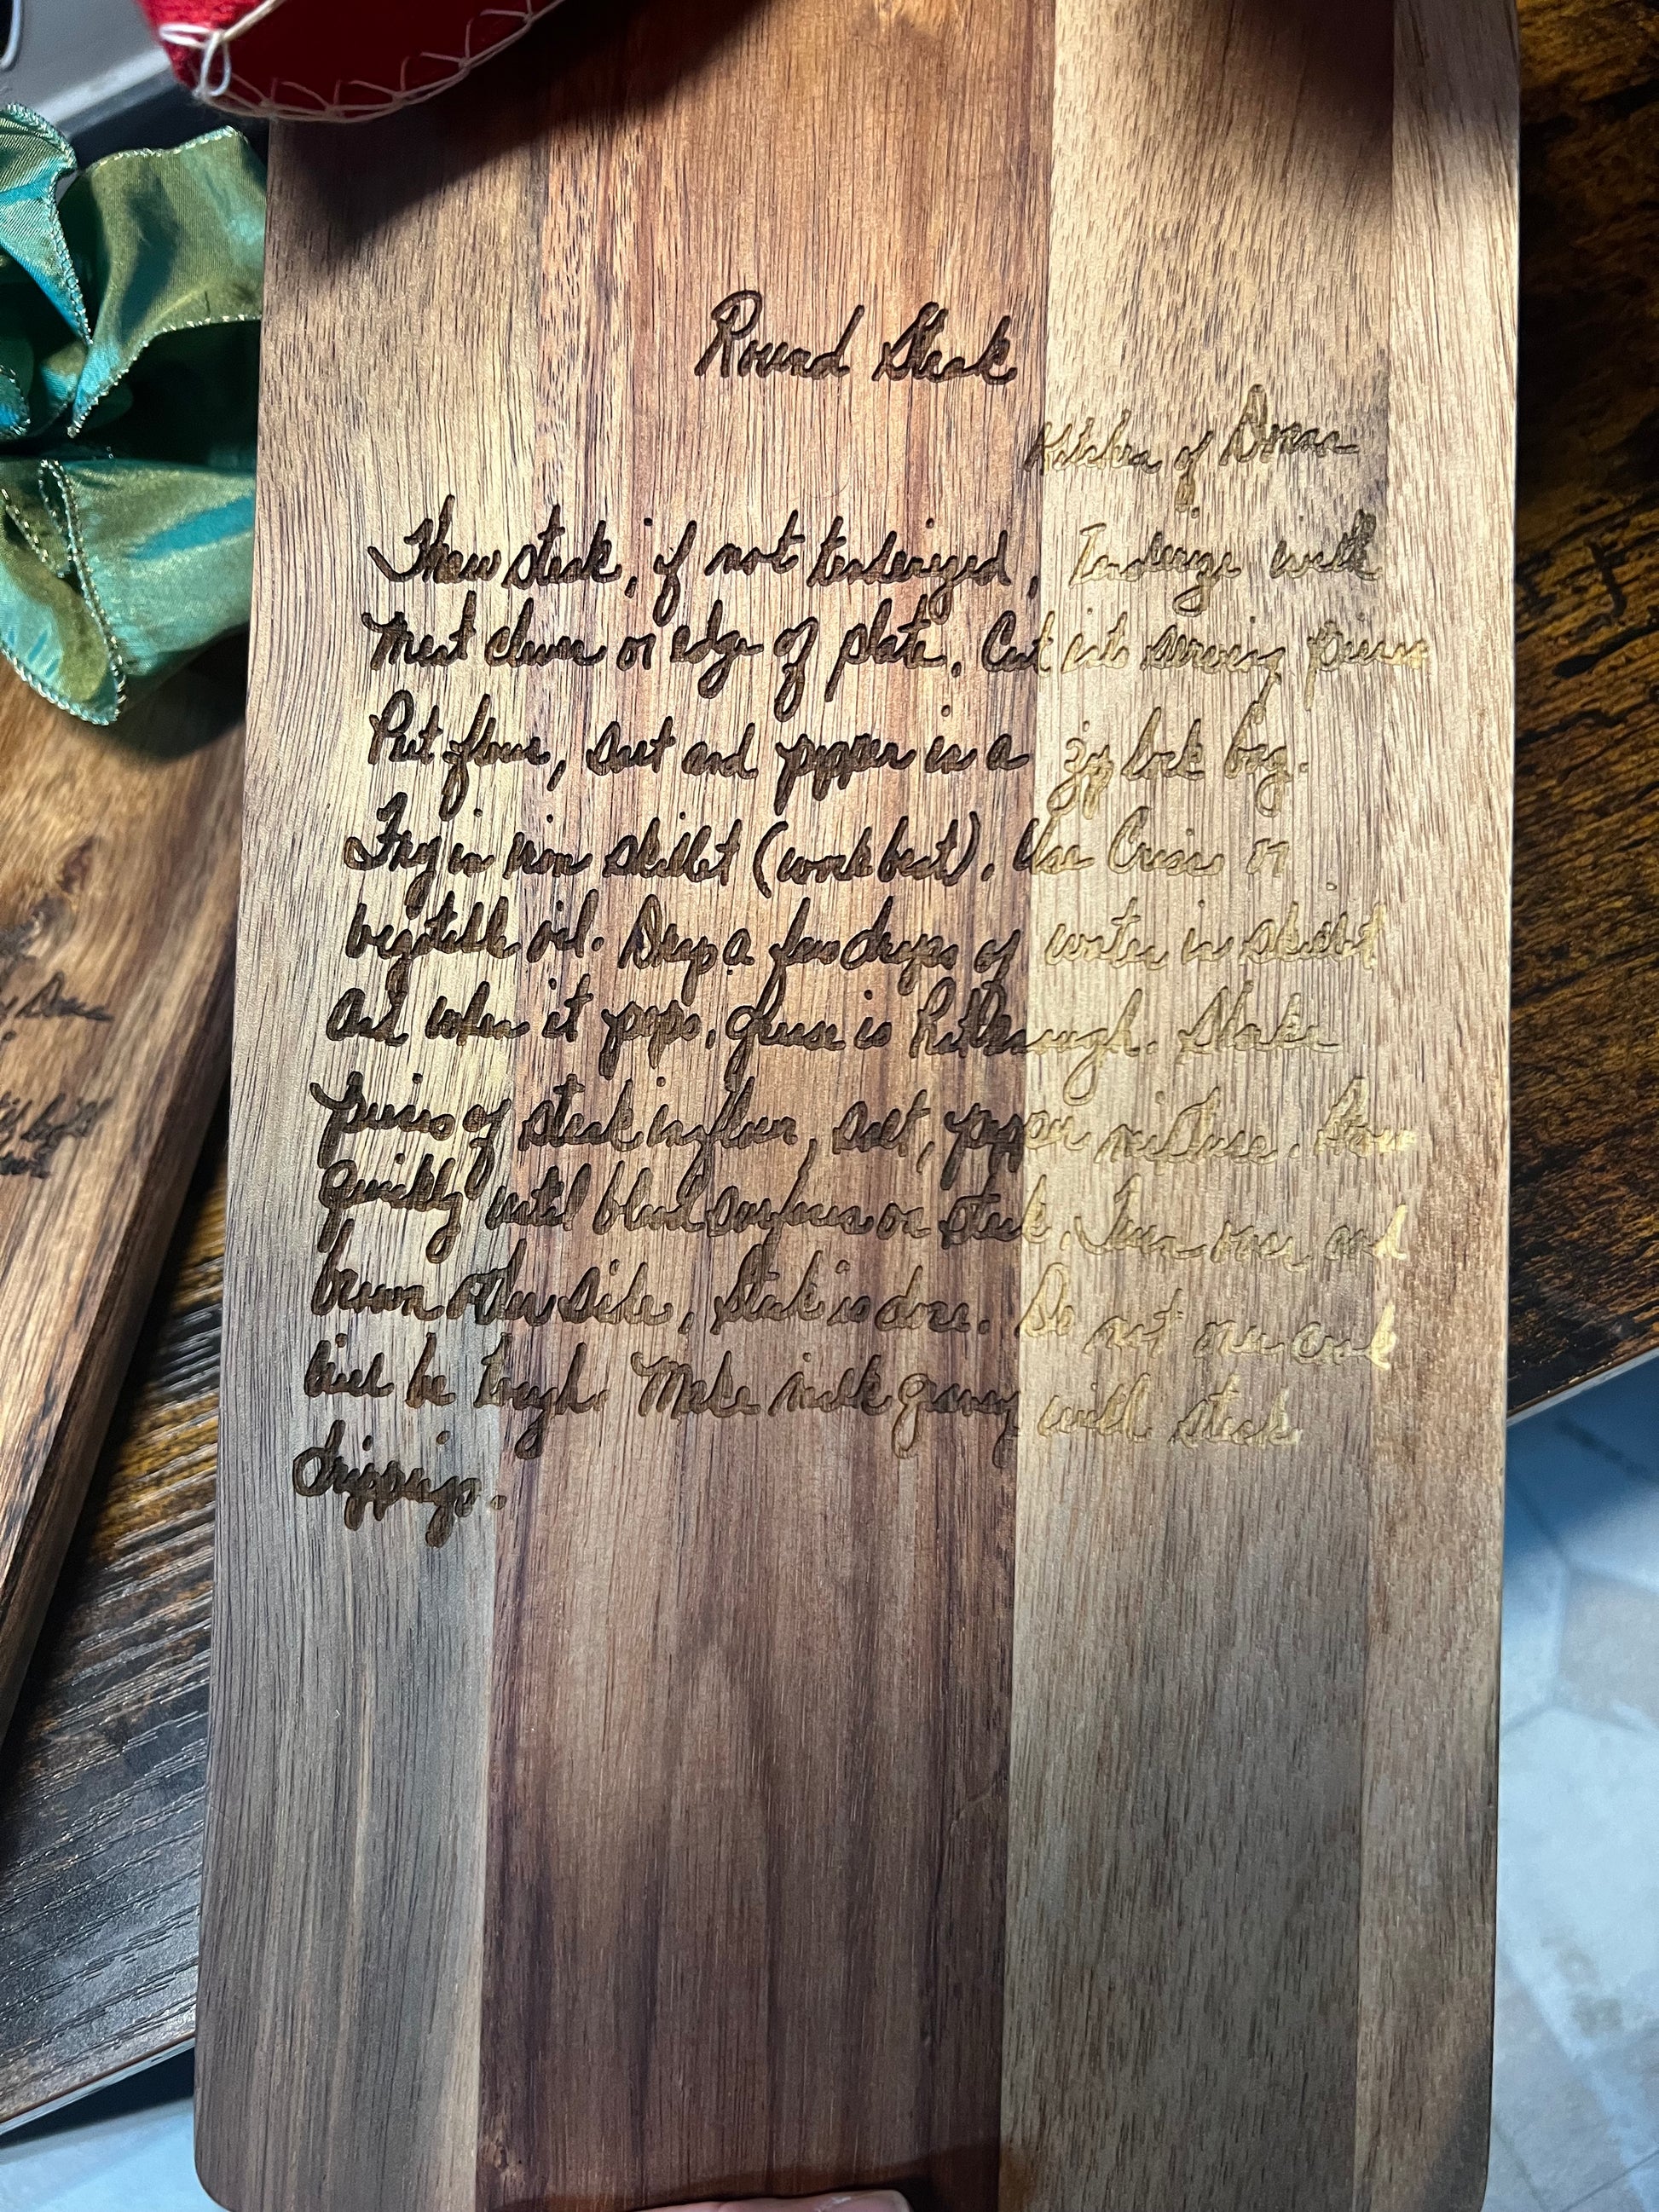 Round Steak
Kitchen of
Thaw steak, if not tenderized, Tenderize with
meat cleaver or edge of plate. Cut into serving pieces
Put flour, salt and pepper in a zip lock bag.
Fry in iron skillet (work best). Use Crisco or
vegetable oil. Drop a few drops of water in skillet
and when it pops, grease is hot enough. Shake
pieces of steak in flour, salt, pepper mixture. Brown
quickly until blood surfaces on steak. Turn over and
brown other side, Steak is done. Do not over cook
will be tough. Make milk gravy with steak
drippings.